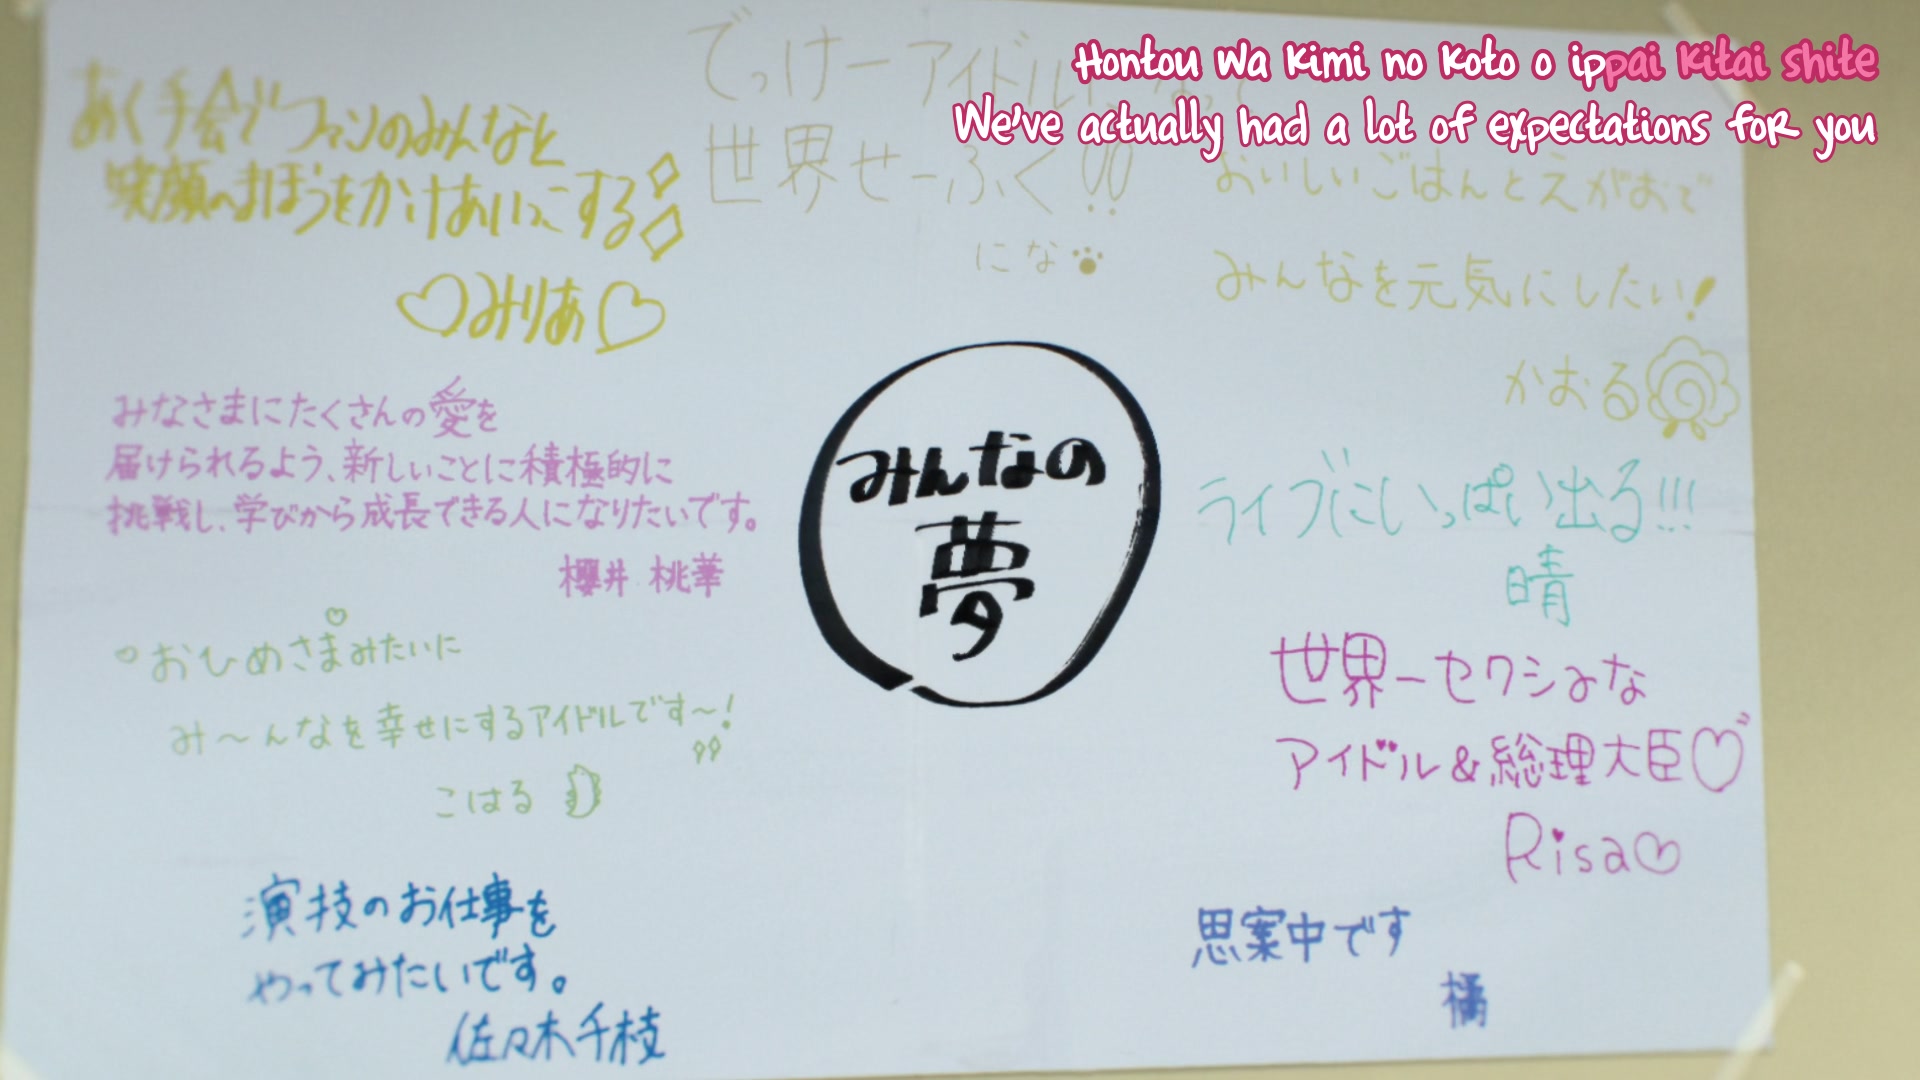 Hontou wa kimi no koto o ippai kitai shite
We've actually had a lot of expectations for you
あく手会でファンのみんなと
笑顔のまほうをかけあいっこする
♡みりあ♡
でっけーアイドルになって
世界せーふく!!
にな
おいしいごはんとえがおで
みんなを元気にしたい!
かおる
みなさまにたくさんの愛を
届けられるよう、新しいことに積極的に
挑戦し、学びから成長できる人になりたいです。
櫻井 桃華
みんなの
夢
ライブにいっぱい出る!!!
晴
おひめさまみたいに
み〜んなを幸せにするアイドルです〜!
こはる
世界一セクシーな
アイドル&総理大臣♡
Risa♡
演技のお仕事を
やってみたいです。
佐々木千枝
思案中です
橘